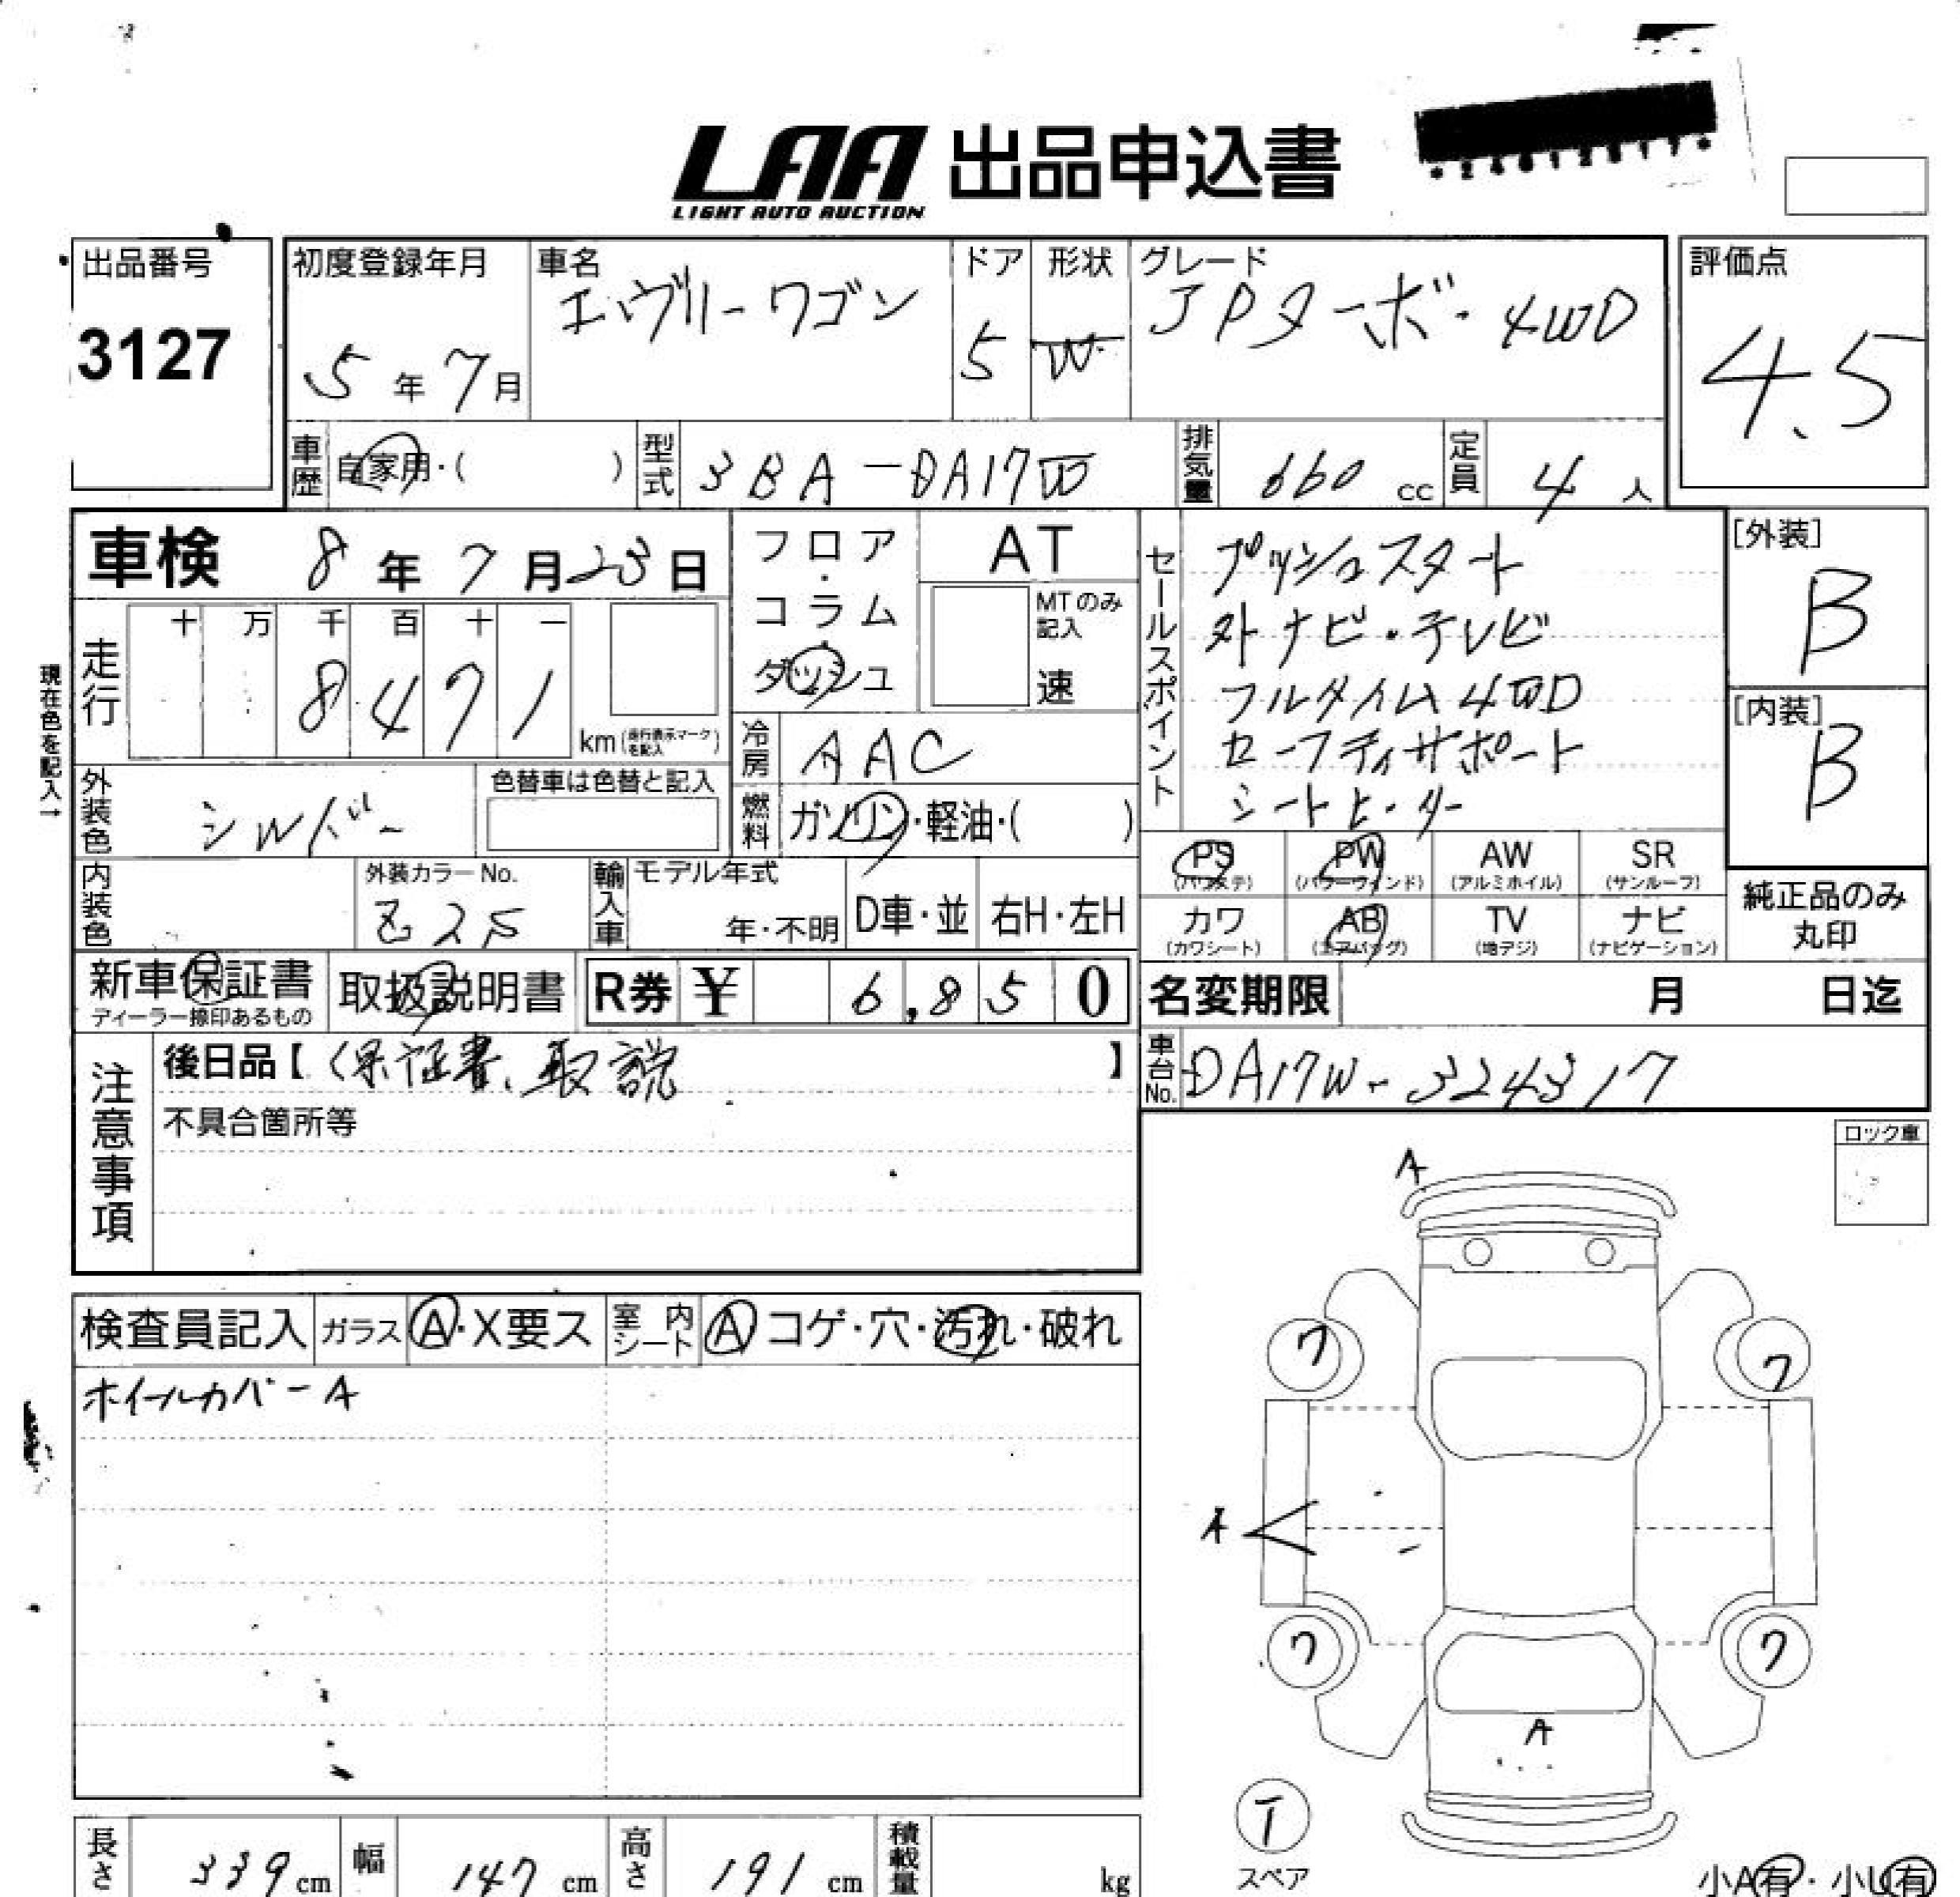 LAA 出品申込書
LIGHT AUTO AUCTION
出品番号
3127
初度登録年月
5年7月
車名
エヴリーワゴン
ドア
5
形状
W
グレード
JPターボ・4WD
評価点
4.5
車歴 自家用・( )
型式 3BA-DA17W
排気量 660 cc
定員 4人
車検 8年7月23日
走行 十 万 千 百 十 一
8471
km(走行表示マークを記入)
現在色を記入→
フロア・コラム・ダッシュ
AT
MTのみ記入
速
冷房 AAC
燃料 ガソリン・軽油・( )
外装色 シルバー
色替車は色替と記入
内装色
外装カラーNo.
Z2S
輸入車
モデル年式
年・不明
D車・並
右H・左H
セールスポイント
プッシュスタート
外ナビ・テレビ
フルタイム4WD
セーフティサポート
シートヒーター
[外装]
B
[内装]
B
PS (パワステ)
PW (パワーウィンド)
AW (アルミホイル)
SR (サンルーフ)
カワ (カワシート)
AB (エアバッグ)
TV (地デジ)
ナビ (ナビゲーション)
純正品のみ丸印
新車保証書
ディーラー捺印あるもの
取扱説明書
R券 ¥ 6,850
名変期限 月 日迄
注意事項
後日品【保証書、取説】
不具合箇所等
車台No. DA17W-324317
ロック車
検査員記入
ガラス A・X要ス
室内シート A コゲ・穴・汚れ・破れ
ホイールカバーA
A
ワ
ワ
A
ワ
ワ
A
T
スペア
小A有・小U有
長さ 339 cm
幅 147 cm
高さ 191 cm
積載量 kg